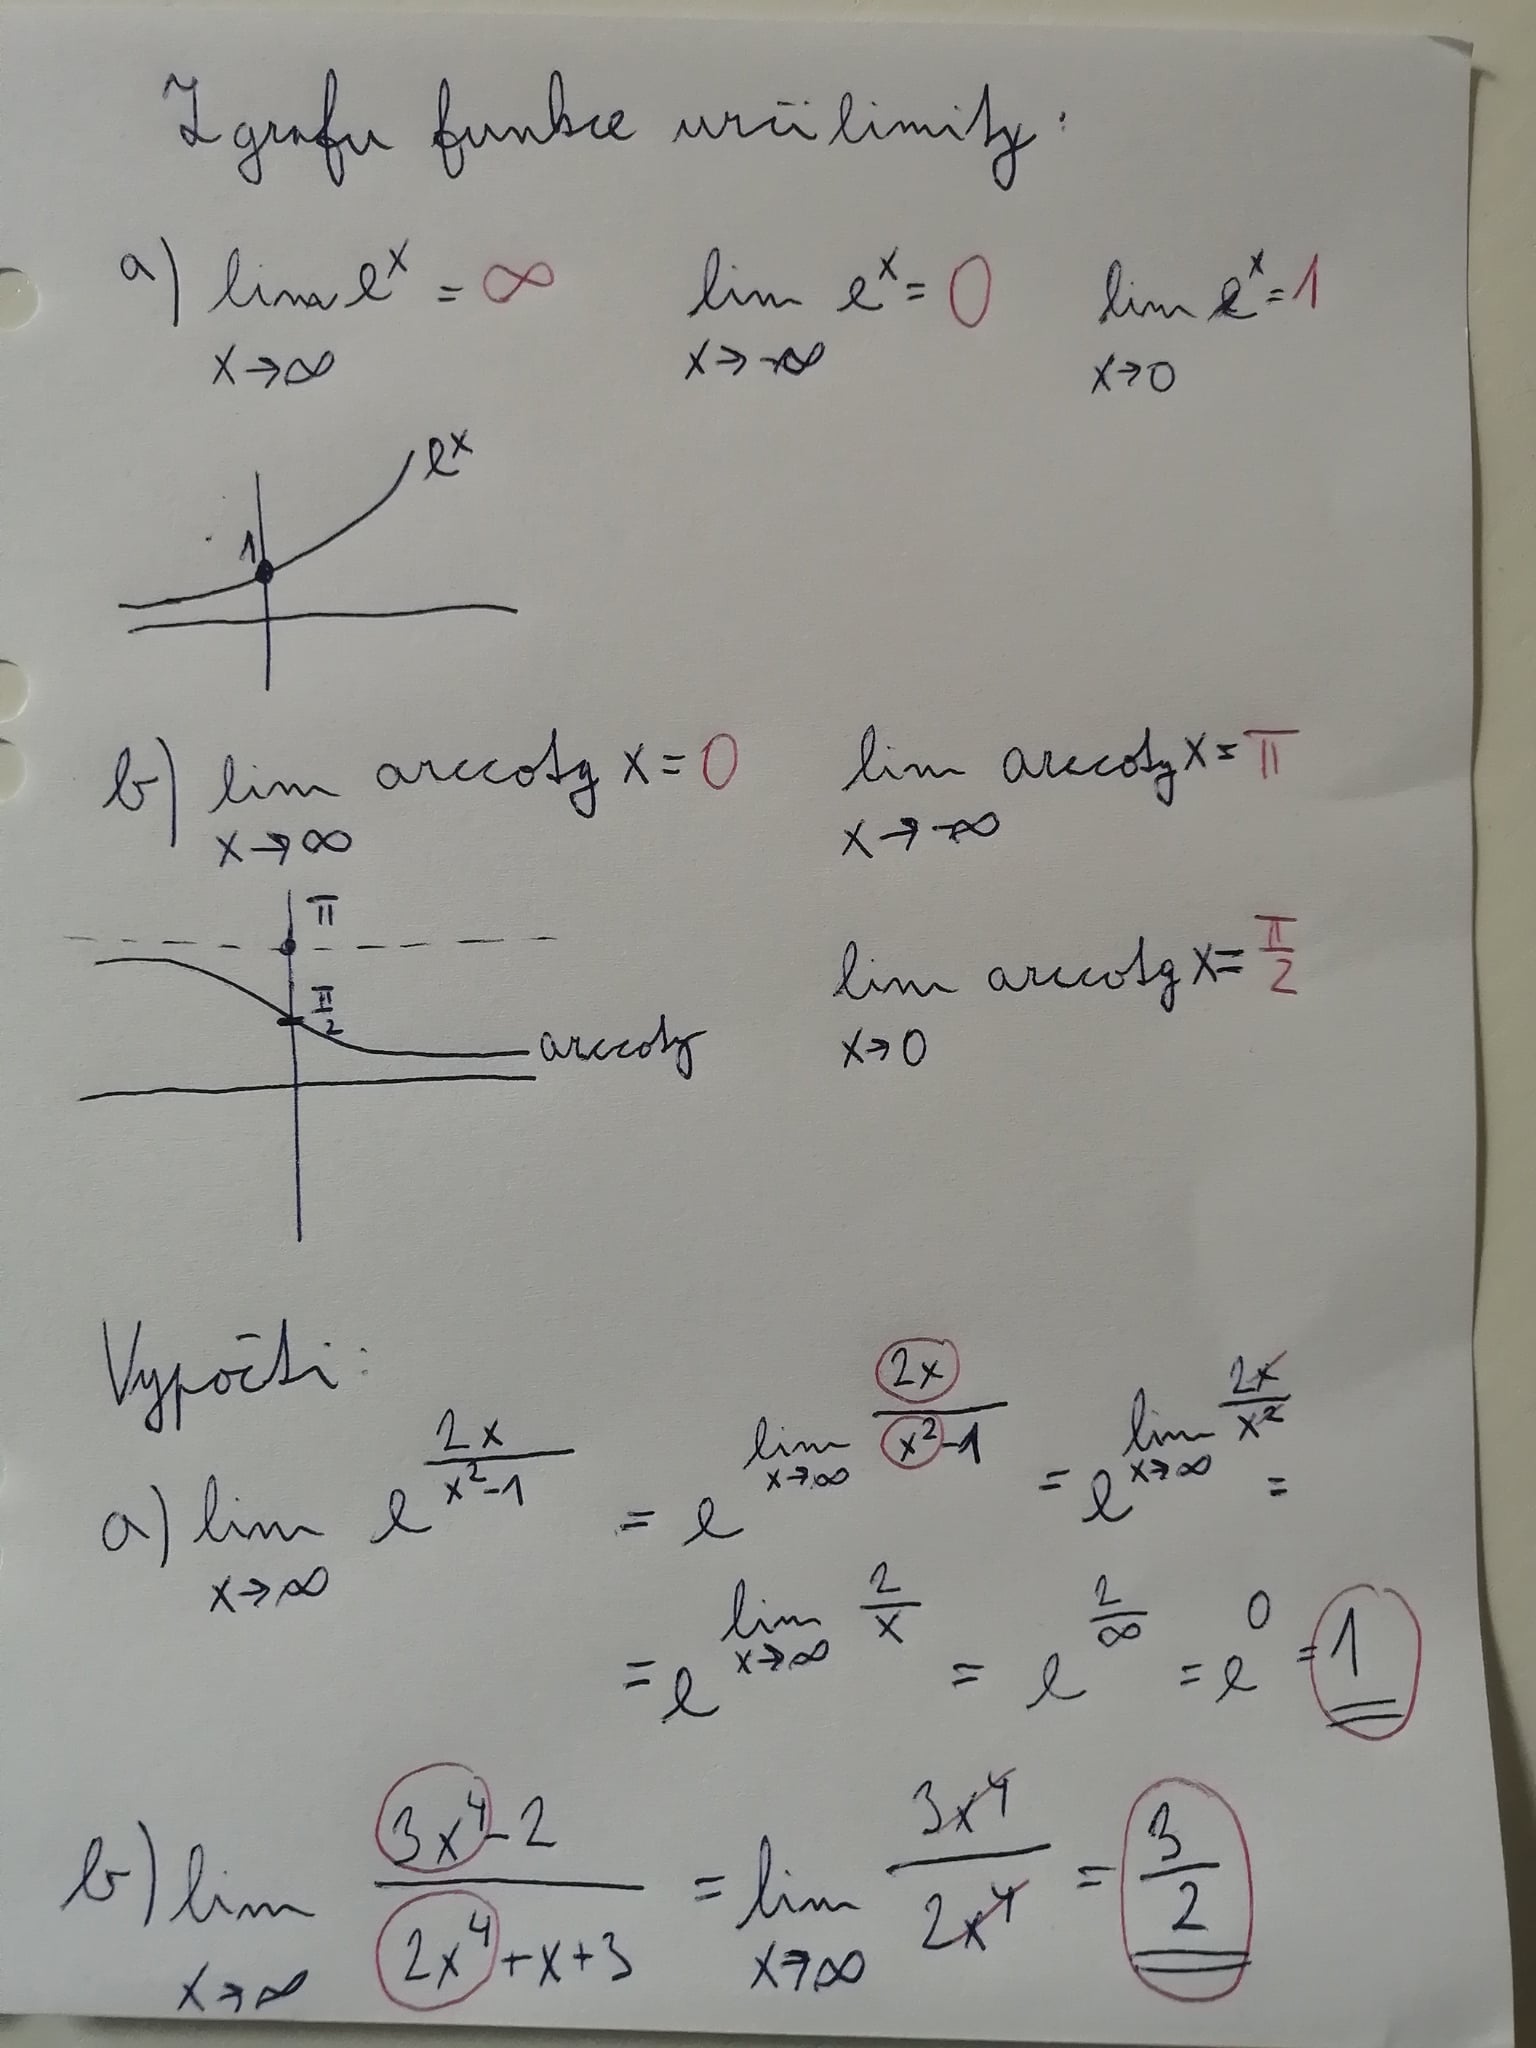 Z grafu funkce urči limity:
a) lim e^x = ∞ lim e^x = 0 lim e^x = 1
x→∞ x→-∞ x→0
e^x
1
b) lim arccotg x = 0 lim arccotg x = π
x→∞ x→-∞
π
lim arccotg x = π/2
x→0
π/2
arccotg
Vypočti:
a) lim e^(2x/(x²-1)) = e^(lim 2x/(x²-1)) = e^(lim 2x/x²) =
x→∞ x→∞ x→∞
= e^(lim 2/x) = e^(2/∞) = e^0 = 1
x→∞
b) lim (3x⁴-2)/(2x⁴+x+3) = lim 3x⁴/2x⁴ = 3/2
x→∞ x→∞